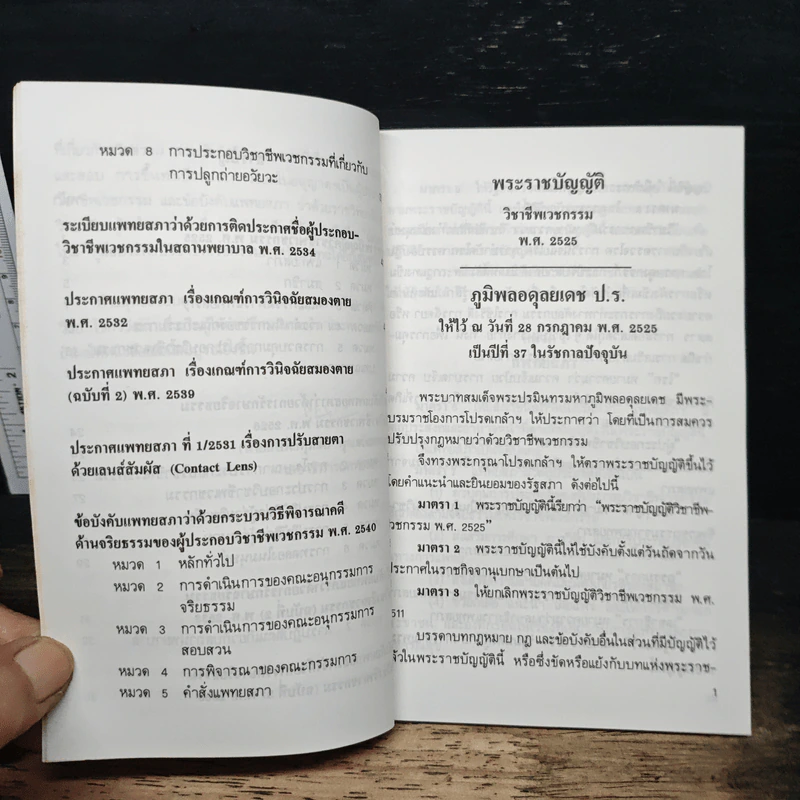 หมวด 8 การประกอบวิชาชีพเวชกรรมที่เกี่ยวกับ
การปลูกถ่ายอวัยวะ
ระเบียบแพทยสภาว่าด้วยการติดประกาศชื่อผู้ประกอบ-
วิชาชีพเวชกรรมในสถานพยาบาล พ.ศ. 2534
ประกาศแพทยสภา เรื่องเกณฑ์การวินิจฉัยสมองตาย
พ.ศ. 2532
ประกาศแพทยสภา เรื่องเกณฑ์การวินิจฉัยสมองตาย
(ฉบับที่ 2) พ.ศ. 2539
ประกาศแพทยสภา ที่ 1/2531 เรื่องการปรับสายตา
ด้วยเลนส์สัมผัส (Contact Lens)
ข้อบังคับแพทยสภาว่าด้วยกระบวนวิธีพิจารณาคดี
ด้านจริยธรรมของผู้ประกอบวิชาชีพเวชกรรม พ.ศ. 2540
หมวด 1 หลักทั่วไป
หมวด 2 การดำเนินการของคณะอนุกรรมการ
จริยธรรม
หมวด 3 การดำเนินการของคณะอนุกรรมการ
สอบสวน
หมวด 4 การพิจารณาของคณะกรรมการ
หมวด 5 คำสั่งแพทยสภา
พระราชบัญญัติ
วิชาชีพเวชกรรม
พ.ศ. 2525
ภูมิพลอดุลยเดช ป.ร.
ให้ไว้ ณ วันที่ 28 กรกฎาคม พ.ศ. 2525
เป็นปีที่ 37 ในรัชกาลปัจจุบัน
พระบาทสมเด็จพระปรมินทรมหาภูมิพลอดุลยเดช มีพระ-
บรมราชโองการโปรดเกล้าฯ ให้ประกาศว่า โดยที่เป็นการสมควร
ปรับปรุงกฎหมายว่าด้วยวิชาชีพเวชกรรม
จึงทรงพระกรุณาโปรดเกล้าฯ ให้ตราพระราชบัญญัติขึ้นไว้
โดยคำแนะนำและยินยอมของรัฐสภา ดังต่อไปนี้
มาตรา 1 พระราชบัญญัตินี้เรียกว่า "พระราชบัญญัติวิชาชีพ-
เวชกรรม พ.ศ. 2525"
มาตรา 2 พระราชบัญญัตินี้ให้ใช้บังคับตั้งแต่วันถัดจากวัน
ประกาศในราชกิจจานุเบกษาเป็นต้นไป
มาตรา 3 ให้ยกเลิกพระราชบัญญัติวิชาชีพเวชกรรม พ.ศ.
511
บรรดาบทกฎหมาย กฎ และข้อบังคับอื่นในส่วนที่มีบัญญัติไว้
แล้วในพระราชบัญญัตินี้ หรือซึ่งขัดหรือแย้งกับบทแห่งพระราช-
1